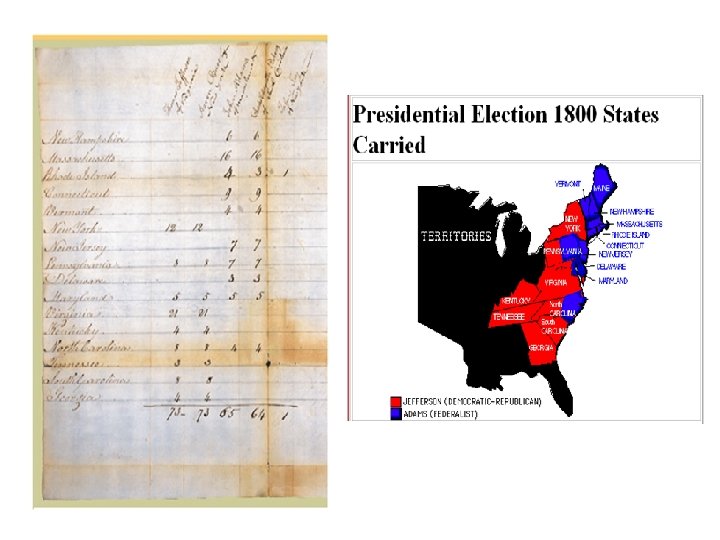 Thomas Jefferson of Virginia
Aaron Burr of New York
John Adams of Massachusetts
of South Carolina
New Hampshire 6 6
Massachusetts 16 16
Rhode Island 4 3 1
Connecticut 9 9
Vermont 4 4
New York 12 12
New Jersey 7 7
Pennsylvania 8 8 7 7
Delaware 3 3
Maryland 5 5 5 5
Virginia 21 21
Kentucky 4 4
North Carolina 8 8 4 4
Tennessee 3 3
South Carolina 8 8
Georgia 4 4
73 73 65 64 1
Presidential Election 1800 States
Carried
TERRITORIES
VERMONT
MAINE
NEW HAMPSHIRE
MASSACHUSETTS
RHODE ISLAND
CONNECTICUT
NEW YORK
NEW JERSEY
PENNSYLVANIA
DELAWARE
MARYLAND
VIRGINIA
KENTUCKY
North CAROLINA
TENNESSEE
South CAROLINA
GEORGIA
JEFFERSON (DEMOCRATIC-REPUBLICAN)
ADAMS (FEDERALIST)